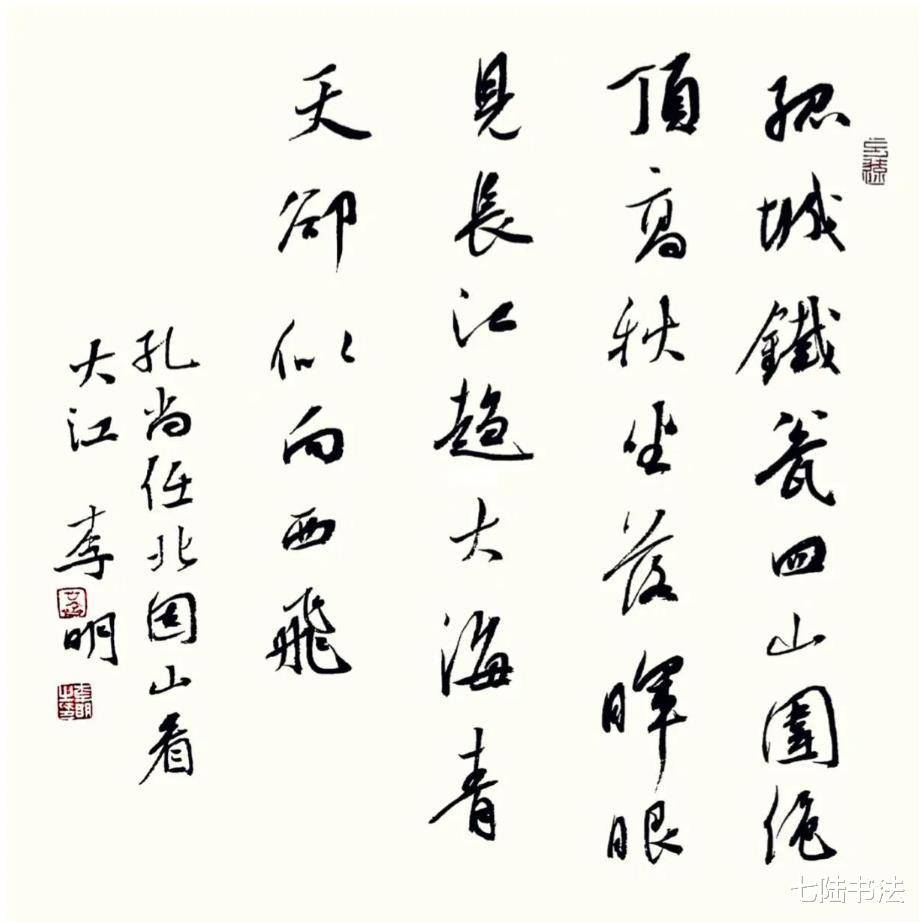 孤城鐵瓮四山圍絕
頂高秋坐落暉眼
見長江趨大海青
天卻似向西飛
孔尚任北固山看
大江 李明
七陆书法